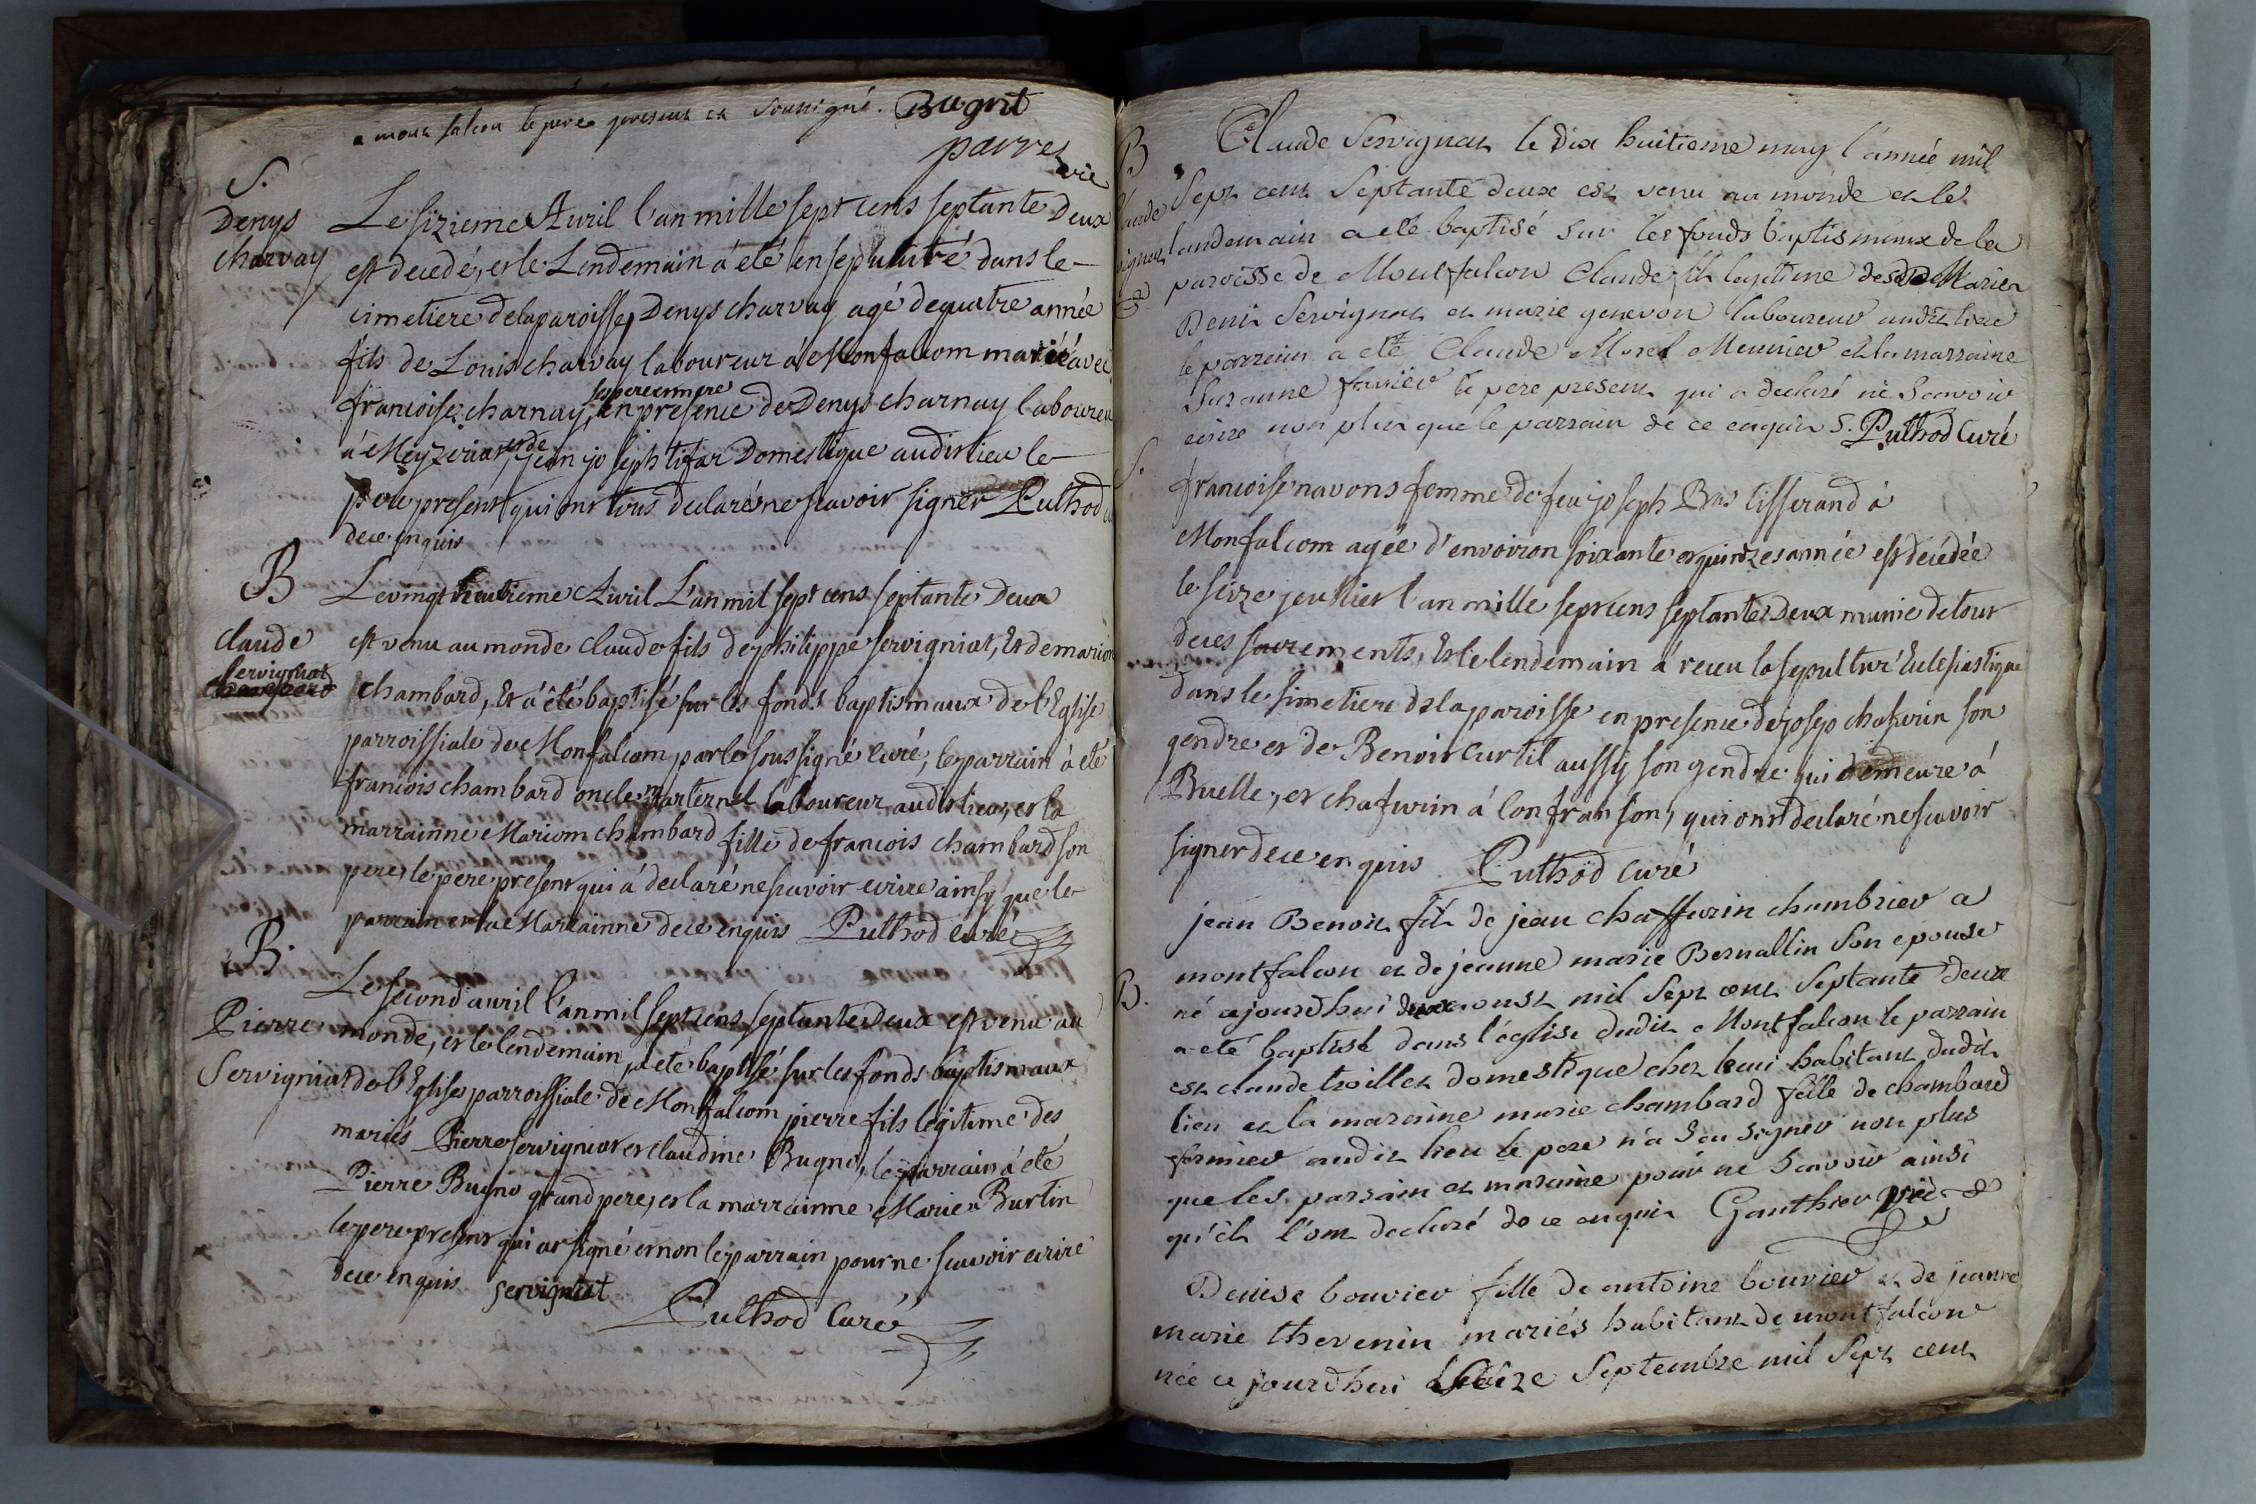 a mont falcon le pere present et soussigné. Bugnit
parret
vic
S.
Denys
charvay
Le sizieme Avril l'an mille sept cens septante Deux
est decedé, et le Lendemain á eté ensepulturé dans le
cimetiere de la paroisse, Denys charvay agé de quatre année
fils de Louis charvay laboureur á Monfalcom marié avec
francoise charnay, en presence de Denys charnay laboureu
son pere
á Meyzeriat, et de jean joseph tifar Domestique audit lieu le
pere present qui ont tous declaré ne scavoir signer Puthod c
de ce enquis
B
claude
servigniat
Le vingt huitieme Avril L'an mil sept cens septante Deux
est venu au monde claude fils de philippe servigniat, Et de marion
chambard, Et á êté baptisé sur les fonds baptismaux de l'Eglise
parroissiale de Monfalcom par le soussigné curé, le parrain á eté
francois chambard oncle marternel laboureur audit lieu, et la
marrainne Mariom chambard fille de francois chambard son
pere, le pere present qui á declaré ne scavoir ecrire ainsy que le
parrain et la Marrainne de ce enquis Puthod curé
B.
Pierre
Servigniat
Le second avril l'an mil sept cens septante Deux est venu au
monde, et le lendemain á eté baptisé sur les fonds baptismaux
de l'Eglise parroissiale de Monfalcom pierre fils legitime des
mariés Pierre servigniat et claudine Bugno, le parrain á eté
Pierre Bugno grand pere, et la marrainne Marie Burtin
le pere present qui at signé et non le parrain pour ne scavoir ecrire
de ce enquis servigniat
Puthod Curé
B
Claude Servignat le dix huitieme may l'année mil
sept cent septante deux est venu au monde et le
landemain a eté baptisé sur les fonds baptismaux de la
paroisse de Montfalcon Claude fils legitime des Mariés
Denis Servignat et marie genevon laboureur audit lieu
le parrain a eté Claude Morel Meunier et la marraine
Suzanne favier le pere present qui a declaré ne scavoir
ecrire non plus que le parrain de ce enquis S. Puthod Curé
S.
francoise navons femme de feu joseph Bus tisserand á
Monfalcom agée d'envoiron soixante et quinze année est decédée
le seize jeullier l'an mille sept cens septante Deux munie de tout
de ces sacrements, Et le lendemain á receu la sepultur' Eclesiastique
dans le simetiere de la paroisse en presence de josep chafurin son
gendre et de Benoit curtil aussy son gendre qui demeure á
Bruelle, et chafurin á Confranson, qui ont declaré ne scavoir
signer de ce enquis Puthod Curé
B.
jean Benoit fils de jean chaffurin chambrier a
montfalcon et de jeanne marie Bernallin son epouse
né ajourdhui deux aoust mil sept cent septante deux
a eté baptisé dans l'église dudit Montfalcon le parrain
est claude troillet domestique chez lui habitant dudit
lieu et la maraine marie chambard fille de chambard
fermier audit lieu le pere n'a seu signer non plus
que les parrain et maraine pour ne scavoir ainsi
qu'ils l'ont declaré de ce enquis Gauthier vic
Denise bouvier fille de antoine bouvier et de jeanne
marie thevenin mariés habitant de montfalcon
née ce jourdhui seize Septembre mil sept cent